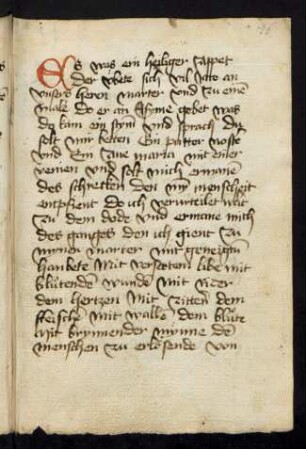 Es was ein heiliger appet
der vbete sich vil Jare an
vnsers heren marter vnd zu eine
male do er an syme gebet was
do kam ein stym vnd sprach du
solt mir betten Ein patter noster
vnd Ein aue maria mit
venien vnd solt mich ermane
des schrecken den my menscheit
entphient do ich verurteilet wart
zu dem dode vnd ermane mich
des ganges den ich gient zu
myner marter mit geneigtem
haubete Mit versertem libe mit
blutende wunde mit
dem hertzen Mit zittern dem
fleische Mit walle dem blute
Mit brynnender mynne de
menschen zu erlosende von